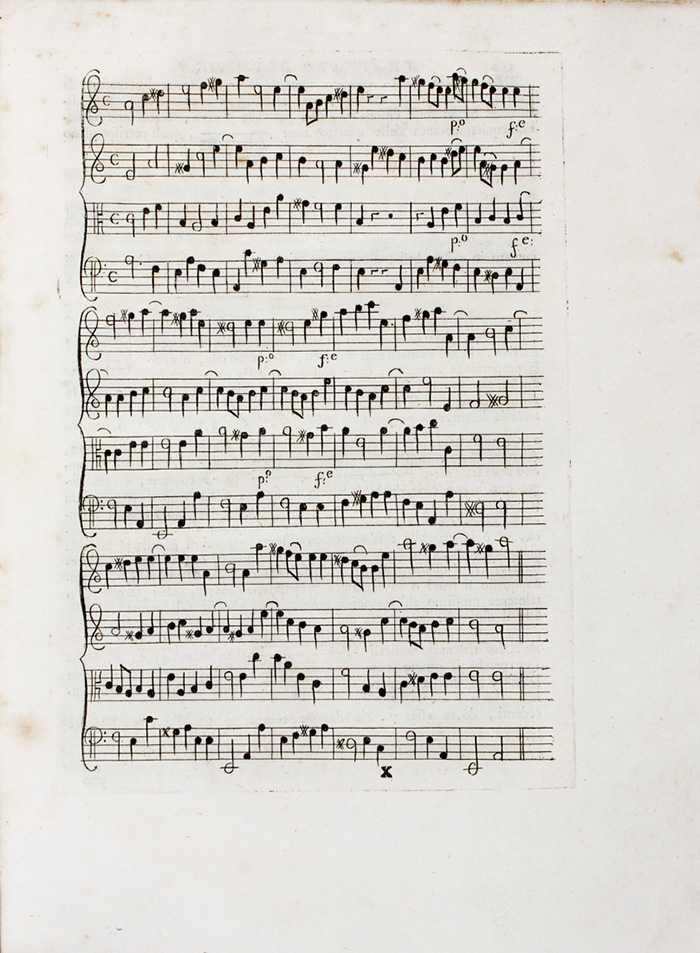 p:o f:e
p:o f:e:
p:o f:e
p:o f:e
X